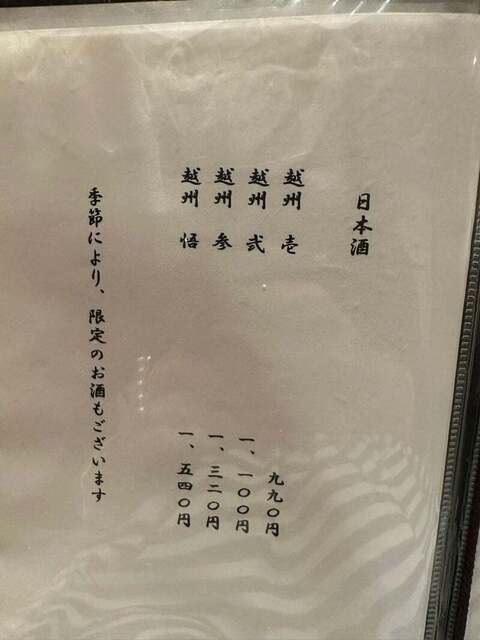 日本酒
越州 壱 九九〇円
越州 弐 一、一〇〇円
越州 参 一、三二〇円
越州 悟 一、五四〇円
季節により、限定のお酒もございます